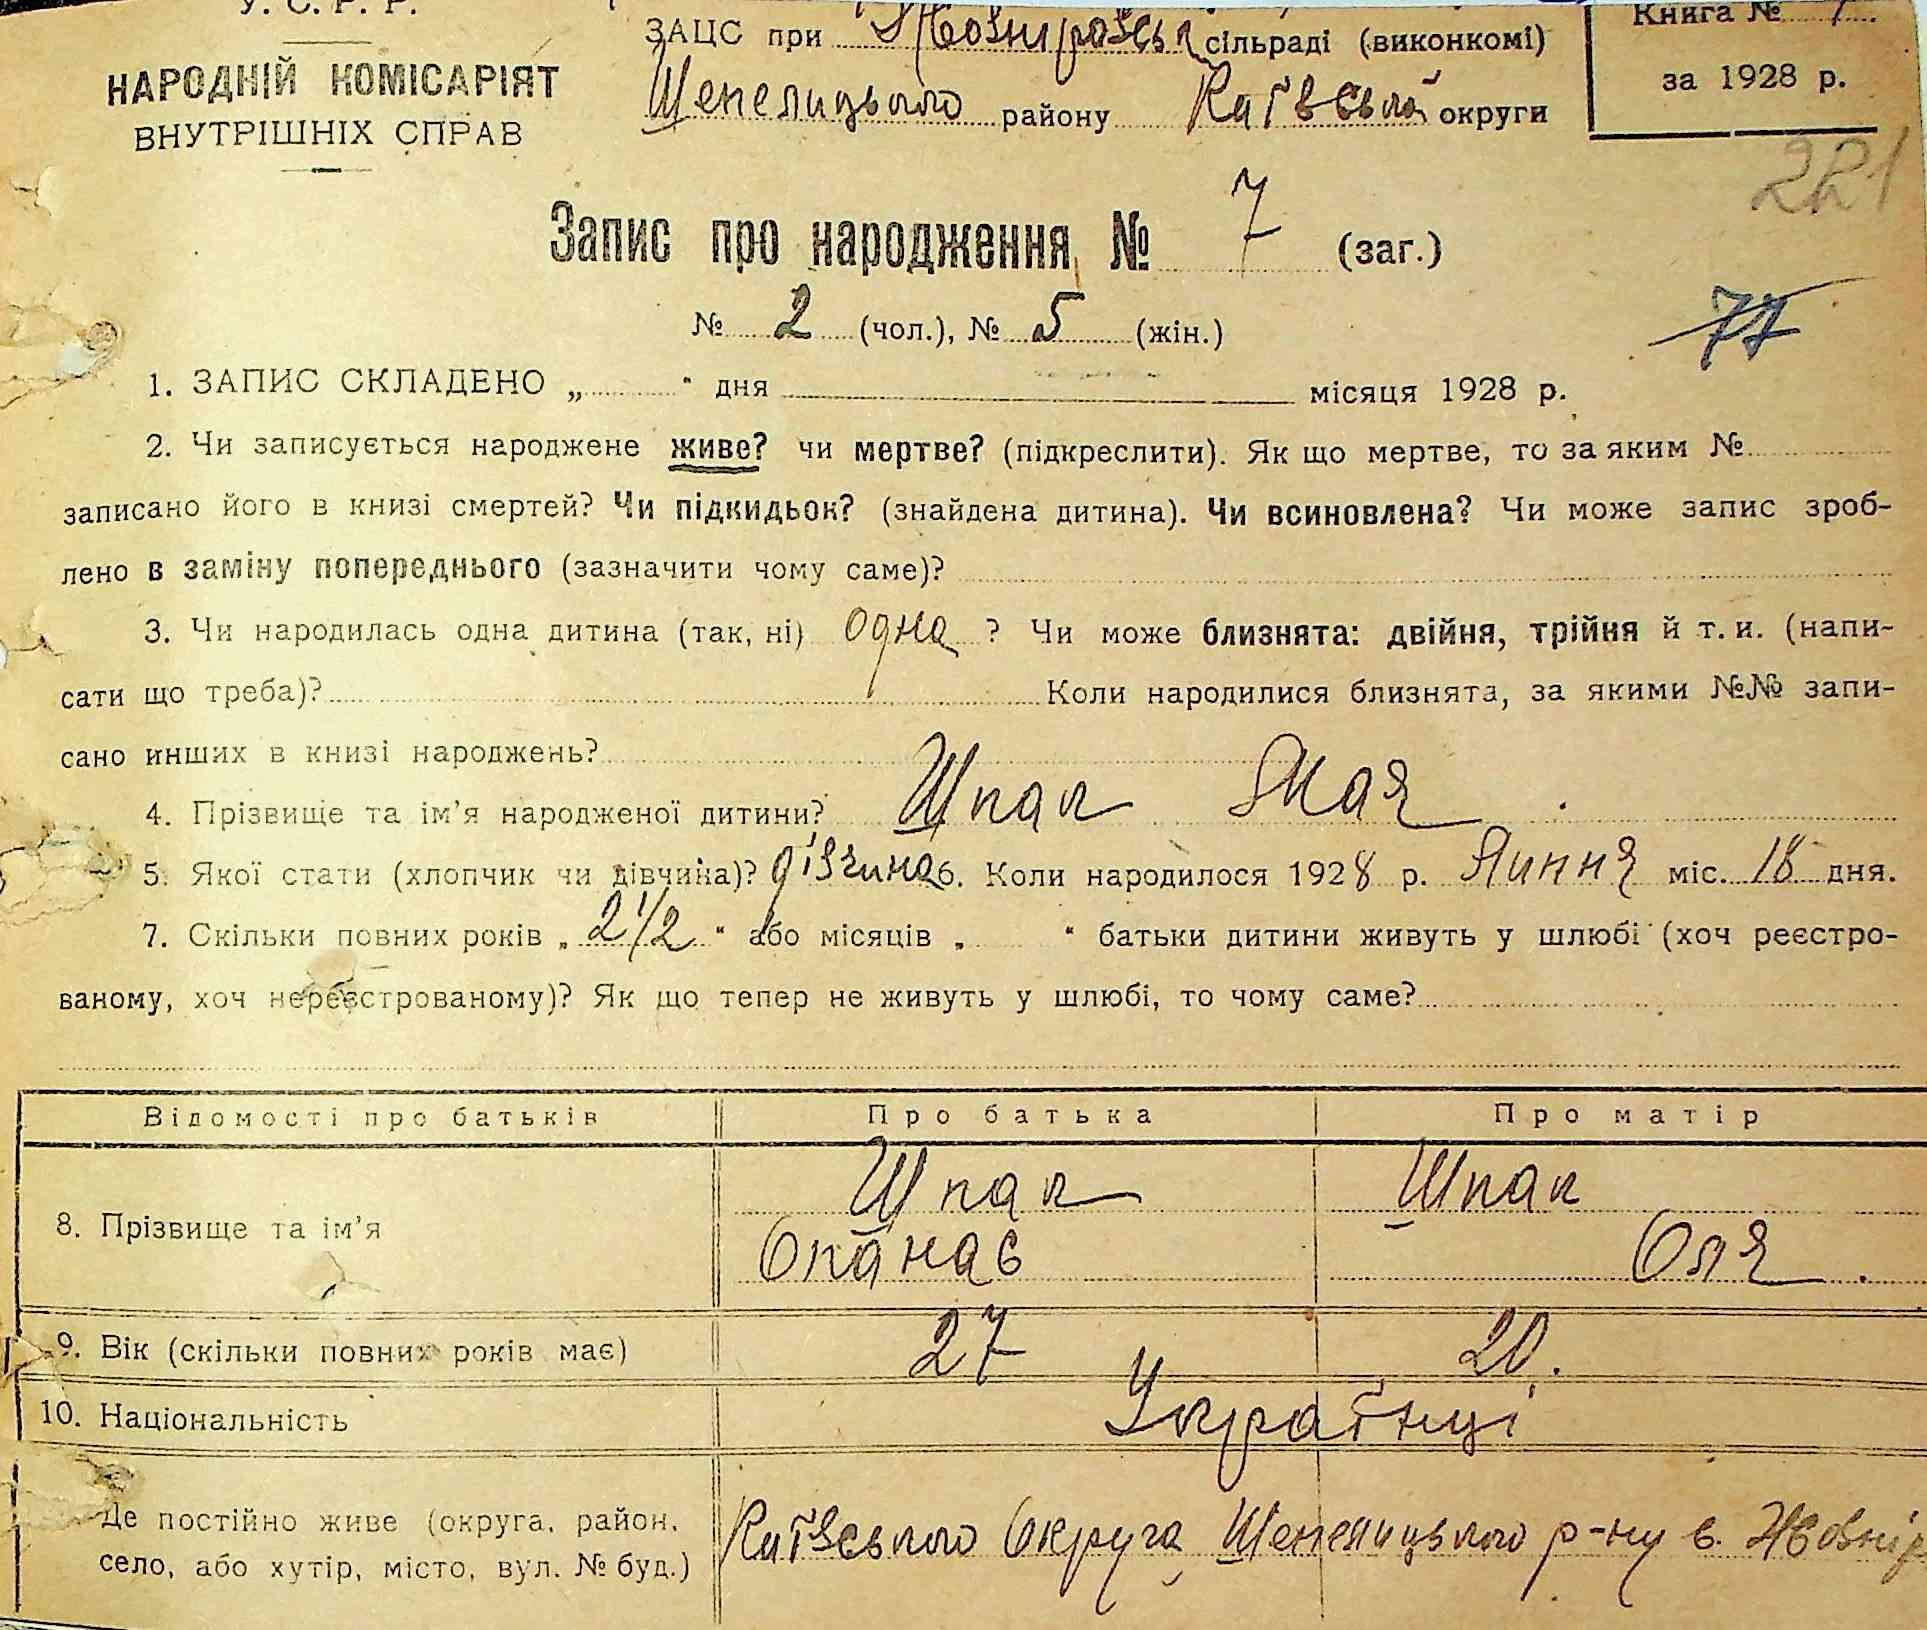 У. С. Р. Р.
НАРОДНІЙ КОМІСАРІЯТ
ВНУТРІШНІХ СПРАВ
ЗАЦС при сільраді (виконкомі)
Шепелицького району Київської округи
Книга № 1
за 1928 р.
221
Запис про народження № 7 (заг.)
№ 2 (чол.), № 5 (жін.)
77
1. ЗАПИС СКЛАДЕНО „ “ дня місяця 1928 р.
2. Чи записується народжене живе? чи мертве? (підкреслити). Як що мертве, то за яким №
записано його в книзі смертей? Чи підкидьок? (знайдена дитина). Чи всиновлена? Чи може запис зроб-
лено в заміну попереднього (зазначити чому саме)?
3. Чи народилась одна дитина (так, ні) одна ? Чи може близнята: двійня, трійня й т. и. (напи-
сати що треба)? Коли народилися близнята, за якими №№ запи-
сано инших в книзі народжень?
4. Прізвище та ім’я народженої дитини? Шпак Мая
5. Якої стати (хлопчик чи дівчина)? дівчина 6. Коли народилося 1928 р. Липня міс. 18 дня.
7. Скільки повних років „ 2 1/2 “ або місяців „ “ батьки дитини живуть у шлюбі (хоч реєстро-
ваному, хоч нереєстрованому)? Як що тепер не живуть у шлюбі, то чому саме?
Відомості про батьків Про батька Про матір
8. Прізвище та ім’я Шпак Опанас Шпак Оля
9. Вік (скільки повних років має) 27 20.
10. Національність Українці
Де постійно живе (округа, район,
село, або хутір, місто, вул. № буд.) Київського Округа Шепелицького р-ну в.